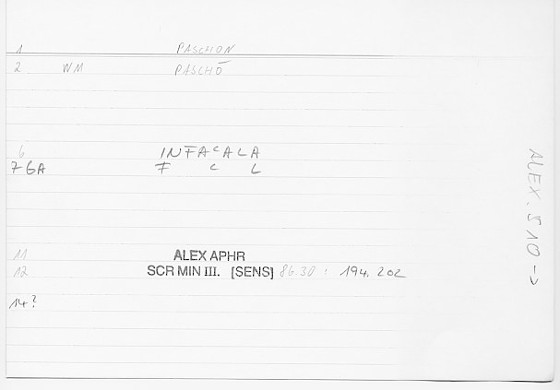 1 PASCHON
2 WM PASCHŌ
6 INFACALA
7 GA F C L
11 ALEX APHR
12 SCR MIN III. [SENS] 86.30 : 194. 202
14?
ALEX. S 10 →